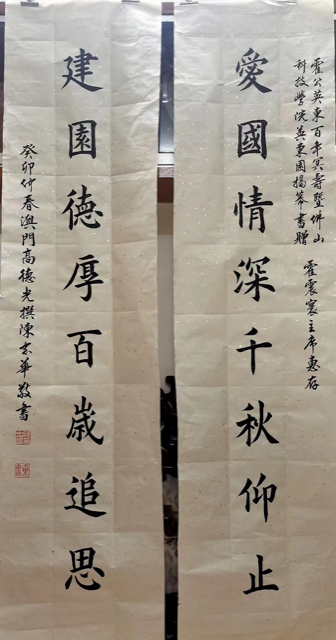 霍公英東百年冥壽暨佛山
科技學院英東園揭幕書贈
霍震寰主席惠存
愛國情深千秋仰止
建園德厚百歲追思
癸卯仲春澳門高德光撰陳志華敬書